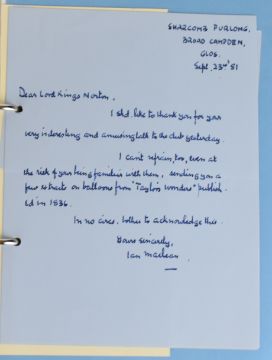 SHARCOMB FURLONG,
BROAD CAMPDEN,
GLOS.
Sept. 23rd '81
Dear Lord Kings Norton,
I shd. like to thank you for your
very interesting and amusing talk to the club yesterday.
I can't refrain, too, even at
the risk of your being familiar with them, sending you a
few extracts on balloons from "Taylor's Wonders" publish-
ed in 1836.
In no circs. bother to acknowledge this.
Yours sincerely,
Ian Maclean